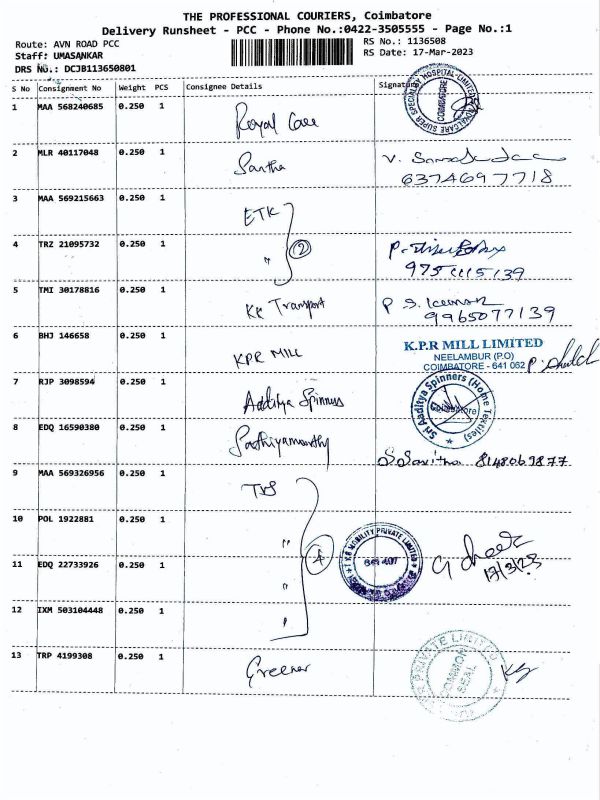 THE PROFESSIONAL COURIERS, Coimbatore
Delivery Runsheet - PCC - Phone No.:0422-3505555 - Page No.:1
Route: AVN ROAD PCC
RS No.: 1136508
Staff: UMASANKAR
RS Date: 17-Mar-2023
DRS No.: DCJB113650801
S No Consignment No Weight PCS Consignee Details Signature
1 MAA 568240685 0.250 1 Royal Care
COIMBATORE
2 MLR 40117048 0.250 1 Santha
6374697718
3 MAA 569215663 0.250 1 ETK
4 TRZ 21095732 0.250 1 " 2
5 TMI 30178816 0.250 1 KK Transport
9965077139
6 BHJ 146658 0.250 1 KPR MILL
K.P.R MILL LIMITED
NEELAMBUR (P.O)
COIMBATORE - 641 062
7 RJP 3098594 0.250 1 Additya Spinners
Sri Aaditya Spinners (Home Textiles)
Coimbatore
8 EDQ 16590380 0.250 1 Sathiyamoorthy
S Savitha 8148069877
9 MAA 569326956 0.250 1 TVS
10 POL 1922881 0.250 1 "
11 EDQ 22733926 0.250 1 " 4
MOBILITY PRIVATE LIMITED
17/3/23
12 IXM 503104448 0.250 1 "
13 TRP 4199308 0.250 1 Greener
PRIVATE LIMITED
COMMON SEAL